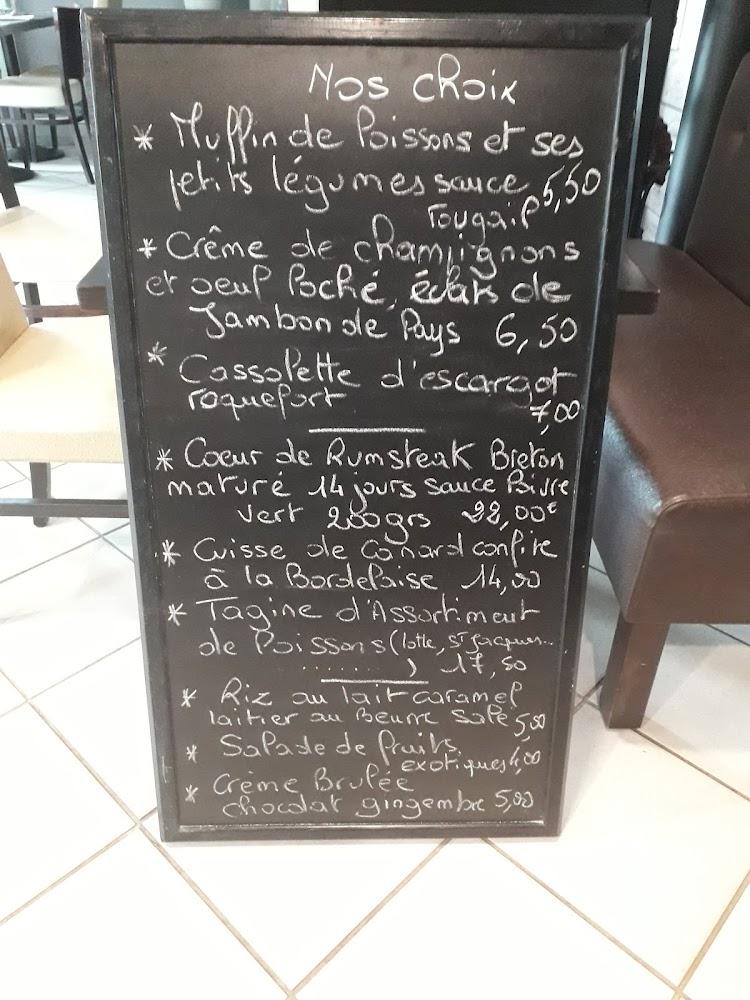 Nos choix
* Muffin de Poissons et ses
petits légumes sauce 5,50
* Crême de champignons
et oeuf Poché, éclats de
Jambon de Pays 6,50
* Cassolette d'escargot
roquefort 7,00
* Coeur de Rumsteak Breton
maturé 14 jours sauce Poivre
vert 200grs 22,00€
* Cuisse de Canard confite
à la Bordelaise 14,00
* Tagine d'Assortiment
de Poissons (lotte, St Jacques...
........) 17,50
* Riz au lait caramel
laitier au Beurre Salé 5,50
* Salade de fruits
exotiques 4,00
* Crème Brulée
chocolat gingembre 5,00